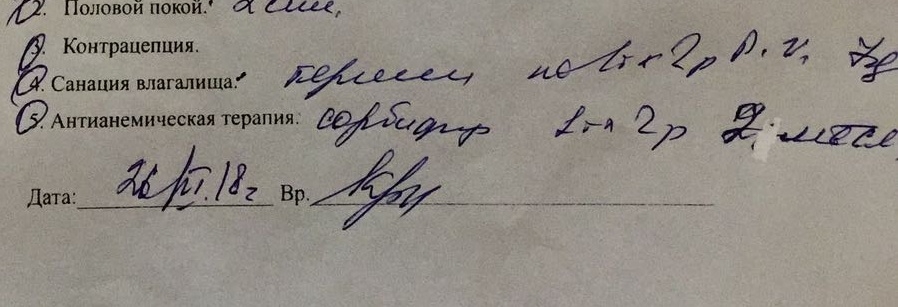 2. Половой покой.
3. Контрацепция.
4. Санация влагалища: по 1т х 2р P.V. 7д
5. Антианемическая терапия: сорбифер 1т х 2р 2 мес
Дата: 26/VI.18г Вр.